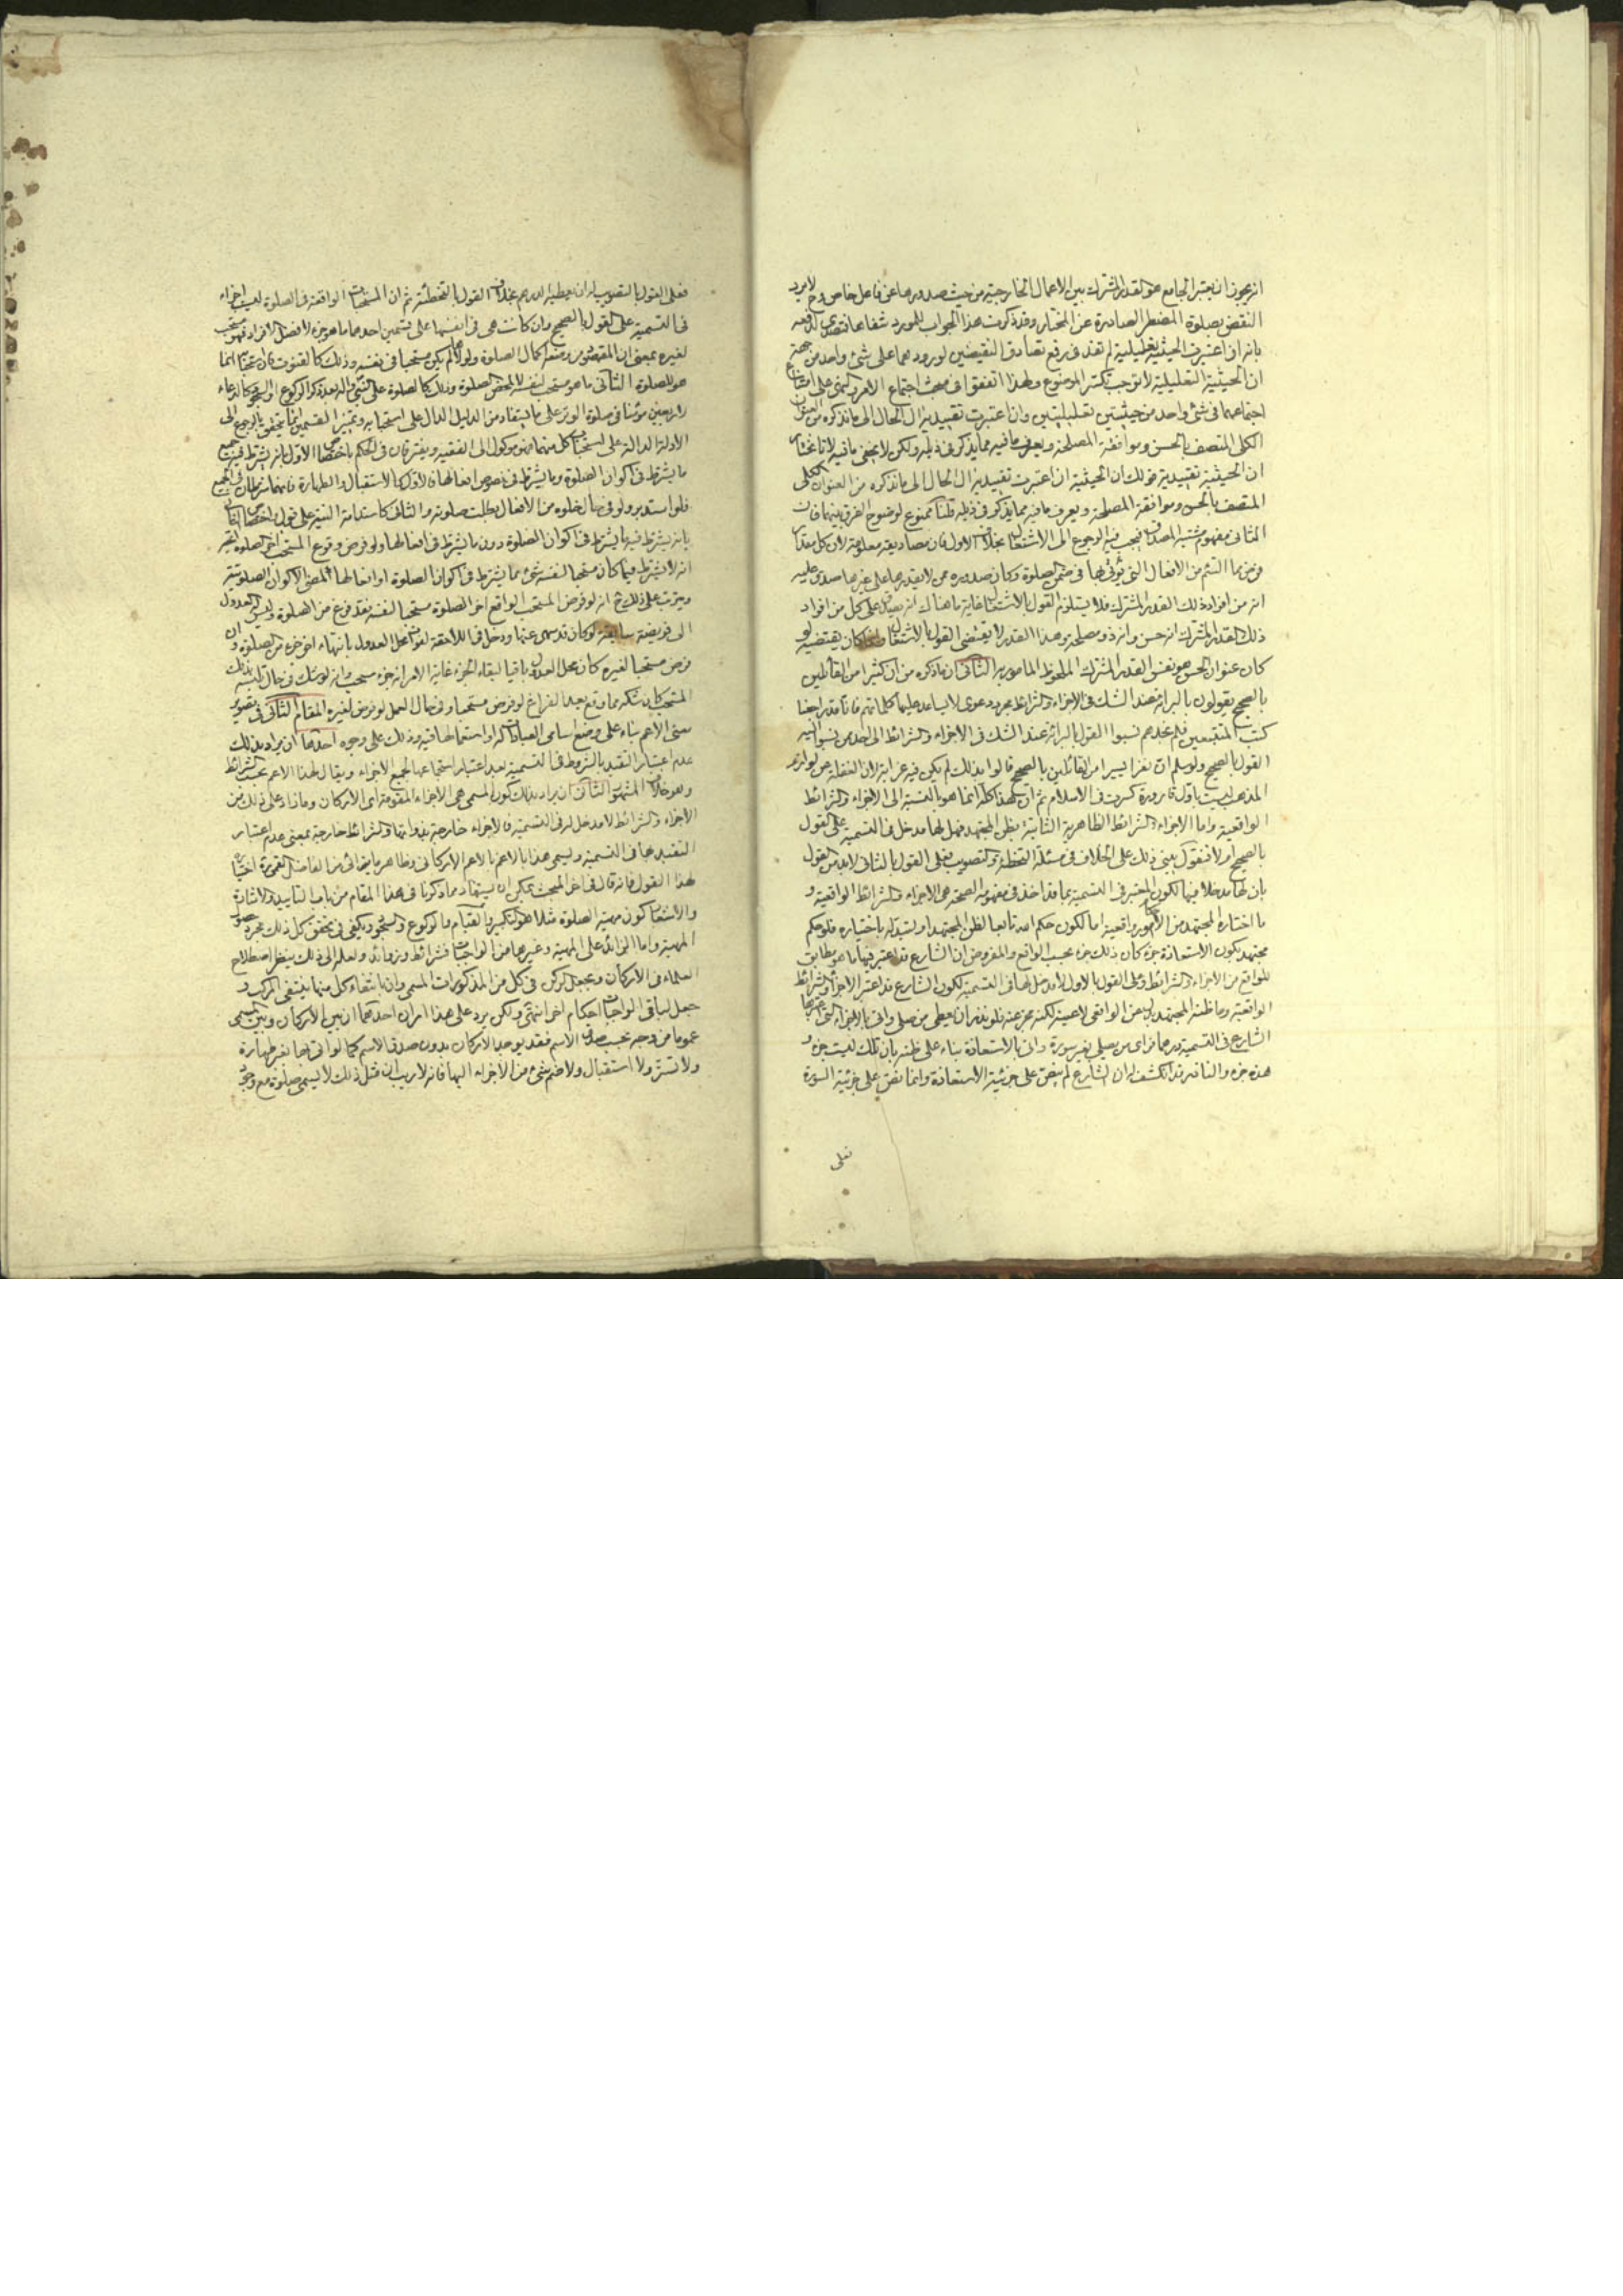 انه يجوز ان يعتبر الجامع هو القدر المشترك بين الاعمال الخارجية من حيث صدورها عن فاعل خاص وح لا يرد
النقض بصلوة المضطر الصادرة عن المختار وقد ذكرت هذا الجواب للمورد شفاها فتصدى لدفعه
بانه ان اعتبرت الحيثية تعليلية لم تفد في رفع تصادق النقيضين لورودهما على شئ واحد من جهة
ان الحيثية التعليلية لا توجب تكثر الموضوع ولهذا اتفقوا في مبحث اجتماع الامر والنهى على امتناع
اجتماعهما في شئ واحد من حيثيتين تعليليتين وان اعتبرت تقييدية ال الحال الى ما نذكره من العنوان
الكلى المتصف بالحسن وموافقة المصلحة ويعرف ما فيه مما يذكر في ذيله ولكن لا يخفى ما فيه لانا نختار
ان الحيثية تقييدية قولك ان الحيثية ان اعتبرت تقييدية ال الحال الى ما نذكره من العنوان الكلى
المتصف بالحسن وموافقة المصلحة ويعرف ما فيه مما يذكر في ذيله قلنا ممنوع لوضوح الفرق بينهما فان
الثانى مفهوم مشتبه المصداق فيجب فيه الرجوع الى الاشتغال بخلاف الاول فان مصاديقه معلومة لان كل مقدار
فرض مما التئم من الافعال التى يؤتى بها في ضمن الصلوة وكان صدوره ممن لا يقدر على غيرها صدق عليه
انه من افراد ذلك القدر المشترك فلا يستلزم القول بالاشتغال غاية ما هناك انه يصدق على كل من افراد
ذلك القدر المشترك انه حسن وانه ذو مصلحة وهذا القدر لا يقتضى القول بالاشتغال وانما كان يقتضيه لو
كان عنوان الحسن هو نفس القدر المشترك الملحوظ المامور به الثانى ان ما ذكره من ان كثيرا من القائلين
بالصحيح يقولون بالبرائة عند الشك في الاجزاء والشرائط مجرد دعوى لا يساعد عليها كلماتهم فانا قد راجعنا
كتب المتتبعين فلم نجدهم نسبوا القول بالبرائة عند الشك في الاجزاء والشرائط الى احد ممن نسبوا اليه
القول بالصحيح ولو سلم ان نفرا يسيرا من القائلين بالصحيح قالوا بذلك لم يكن فيه غرابة لان الغفلة عن لوازم
المذهب ليست باول قارورة كسرت في الاسلام ثم ان هذا كله انما هو بالنسبة الى الاجزاء والشرائط
الواقعية واما الاجزاء والشرائط الظاهرية الثابتة بظن المجتهد فهل لها مدخل في التسمية على القول
بالصحيح ام لا فنقول يبنى ذلك على الخلاف في مسئلة التخطئة والتصويب فعلى القول بالثانى لابد من القول
بان لها مدخلا فيها لكون المعتبر في التسمية بما قد اخذ في مفهومه الصحة هى الاجزاء والشرائط الواقعية و
ما اختاره المجتهد من الامور واقعية اما لكون حكم الله تابعا لظن المجتهد او لتبدله باختياره فلو حكم
مجتهد بكون الاستعاذة جزء كان ذلك جزء بحسب الواقع والمفروض ان الشارع قد اعتبر فيها ما هو مطابق
للواقع من الاجزاء والشرائط وعلى القول بالاول لا مدخل لها في التسمية لكون الشارع قد اعتبر الاجزاء والشرائط
الواقعية وما ظنه المجتهد ليس عين الواقعى لا عينه لكنه فلو نذر ان يعطى من صلى واتى بالاجزاء التى اعتبرها
الشارع في التسمية درهما فراى من يصلى بغير سورة واتى بالاستعاذة بناء على ظنه بان تلك ليست جزء و
هذه جزء والناذر قد انكشف له ان الشارع لم ينص على جزئية الاستعاذة وانما نص على جزئية السورة
فعلى
فعلى القول بالتصويب له ان يعطيه الدرهم بخلاف القول بالتخطئة ثم ان المستحبات الواقعة في الصلوة ليست اجزاء
في التسمية على القول بالصحيح وان كانت هى في انفسها على قسمين احدهما ما هو جزء لافضل الافراد فهو مستحب
لغيره بمعنى ان المقصود منه اكمال الصلوة ولولاها لم يكن مستحبا في نفسه وذلك كالقنوت فان استحبابه انما
هو للصلوة الثانى ما هو مستحب لنفسه لا لمحض الصلوة وذلك كالصلوة على النبى واله بعد ذكر الركوع او السجود وكالدعاء
لاربعين مؤمنا في صلوة الوتر على ما يستفاد من الدليل الدال على استحبابه وتمييز القسمين انما يتحقق بالرجوع الى
الادلة الدالة على استحباب كل منهما فهو موكول الى الفقيه ويفترقان في الحكم باختصاص الاول بانه يشترط فيه جميع
ما يشترط في اكوان الصلوة وما يشترط في خصوص افعالها فالاول كالاستقبال والطهارة فانهما شرطان في الجميع
فلو استدبر ولو في حال خلوه من الافعال بطلت صلوته والثانى كاستدامة النية على قول واختصاص الثانى
بانه يشترط فيه ما يشترط في اكوان الصلوة دون ما يشترط في افعالها ولو فرض وقوع المستحب اخر الصلوة اتجه
انه لا يشترط فيما كان مستحبا لنفسه شئ مما يشترط في اكوان الصلوة او افعالها لمضى الاكوان الصلوتية
ويترتب على ذلك ح انه لو فرض المستحب الواقع اخر الصلوة مستحبا لنفسه فقد فرغ من الصلوة وليس له العدول
الى فريضة سابقة لو كان قد سهى عنها ودخل في اللاحقة لفوات محل العدول بانتهاء اخر جزء من الصلوة وان
فرض مستحبا لغيره كان محل العدول باقيا لبقاء الجزء غاية الامر انه جزء مستحب وانه لو شك في حال تلبسه بذلك
المستحب كان شكه مما وقع بعد الفراغ لو فرض مستحبا وفي حال العمل لو فرض لغيره المقام الثانى في تصوير
معنى الاعم بناء على وضع اسامى العبادات له او استعمالها فيه وذلك على وجوه احدها ان يراد بذلك
عدم اعتبار التقييد بالشروط في التسمية بعد اعتبار استجماعها لجميع الاجزاء ويقال لهذا الاعم بحسب الشرائط
وهو خلاف المشهور الثانى ان يراد بذلك كون المسمى هى الاجزاء المقومة اى الاركان وما زاد على ذلك من
الاجزاء والشرائط لا مدخل له في التسمية فالاجزاء خارجة بذواتها والشرائط خارجة بمعنى عدم اعتبار
التقييد بها في التسمية ويسمى هذا بالاعم بالاعم الاركانى وظاهر ما يترائى من الفاضل القمى ره اختيار
لهذا القول فانه قال في اخر المبحث يمكن ان يستفاد مما ذكرنا في هذا المقام من باب التاييد والاشارة
والاشعار كون مهية الصلوة مثلا هو التكبير والقيام والركوع والسجود ويكفى في تحقق كل ذلك مجرد حصول
المهية واما الزائد على المهية وغيرها من الواجبات فشرائط وزوائد ولعله الى ذلك ينظر اصطلاح
العلماء في الاركان وبجعل الركن في كل من المذكورات المسمى وان بانتفاء كل منها ينتفى المركب و
جعل لباقى الواجبات احكام اخر انتهى ولكن يرد على هذا امران احدهما ان بين الاركان وبين المسمى
عموما من وجه بحسب صدق الاسم فقد يوجد الاركان بدون صدق الاسم كما لو اتى بها بغير طهارة
ولا تستر ولا استقبال ولا ضم شئ من الاجزاء اليها فانه لا ريب ان مثل ذلك لا يسمى صلوة مع وجود